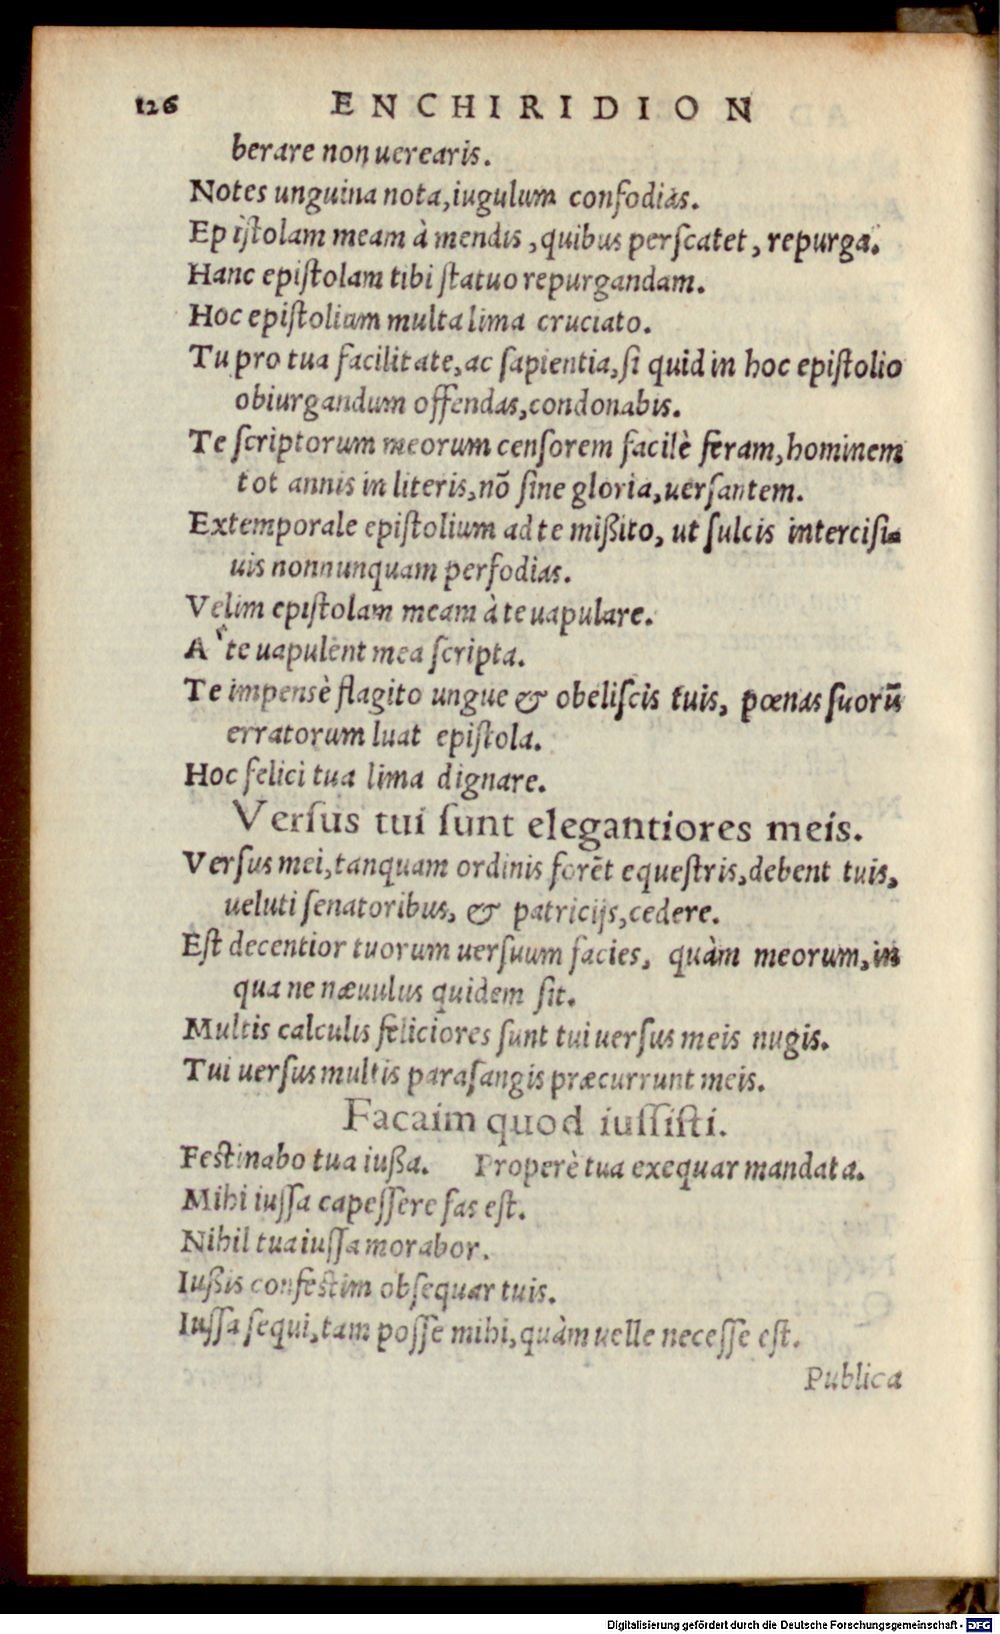 126 ENCHIRIDION
berare non uerearis.
Notes unguina nota, iugulum confodias.
Epistolam meam à mendis, quibus perscatet, repurga.
Hanc epistolam tibi statuo repurgandam.
Hoc epistolium multa lima cruciato.
Tu pro tua facilitate, ac sapientia, si quid in hoc epistolio
obiurgandum offendas, condonabis.
Te scriptorum meorum censorem facilè feram, hominem
tot annis in literis, nõ sine gloria, uersantem.
Extemporale epistolium ad te mißito, ut sulcis intercisi-
uis nonnunquam perfodias.
Velim epistolam meam à te uapulare.
A te uapulent mea scripta.
Te impensè flagito ungue & obeliscis tuis, pœnas suorũ
erratorum luat epistola.
Hoc felici tua lima dignare.
Versus tui sunt elegantiores meis.
Versus mei, tanquam ordinis forẽt equestris, debent tuis,
ueluti senatoribus, & patricijs, cedere.
Est decentior tuorum uersuum facies, quàm meorum, in
qua ne næuulus quidem sit.
Multis calculis feliciores sunt tui uersus meis nugis.
Tui uersus multis parasangis præcurrunt meis.
Facaim quod iussisti.
Festinabo tua iußa. Properè tua exequar mandata.
Mihi iussa capessere fas est.
Nihil tua iussa morabor.
Iußis confestim obsequar tuis.
Iussa sequi, tam posse mihi, quàm uelle necesse est.
Publica
Digitalisierung gefördert durch die Deutsche Forschungsgemeinschaft - DFG